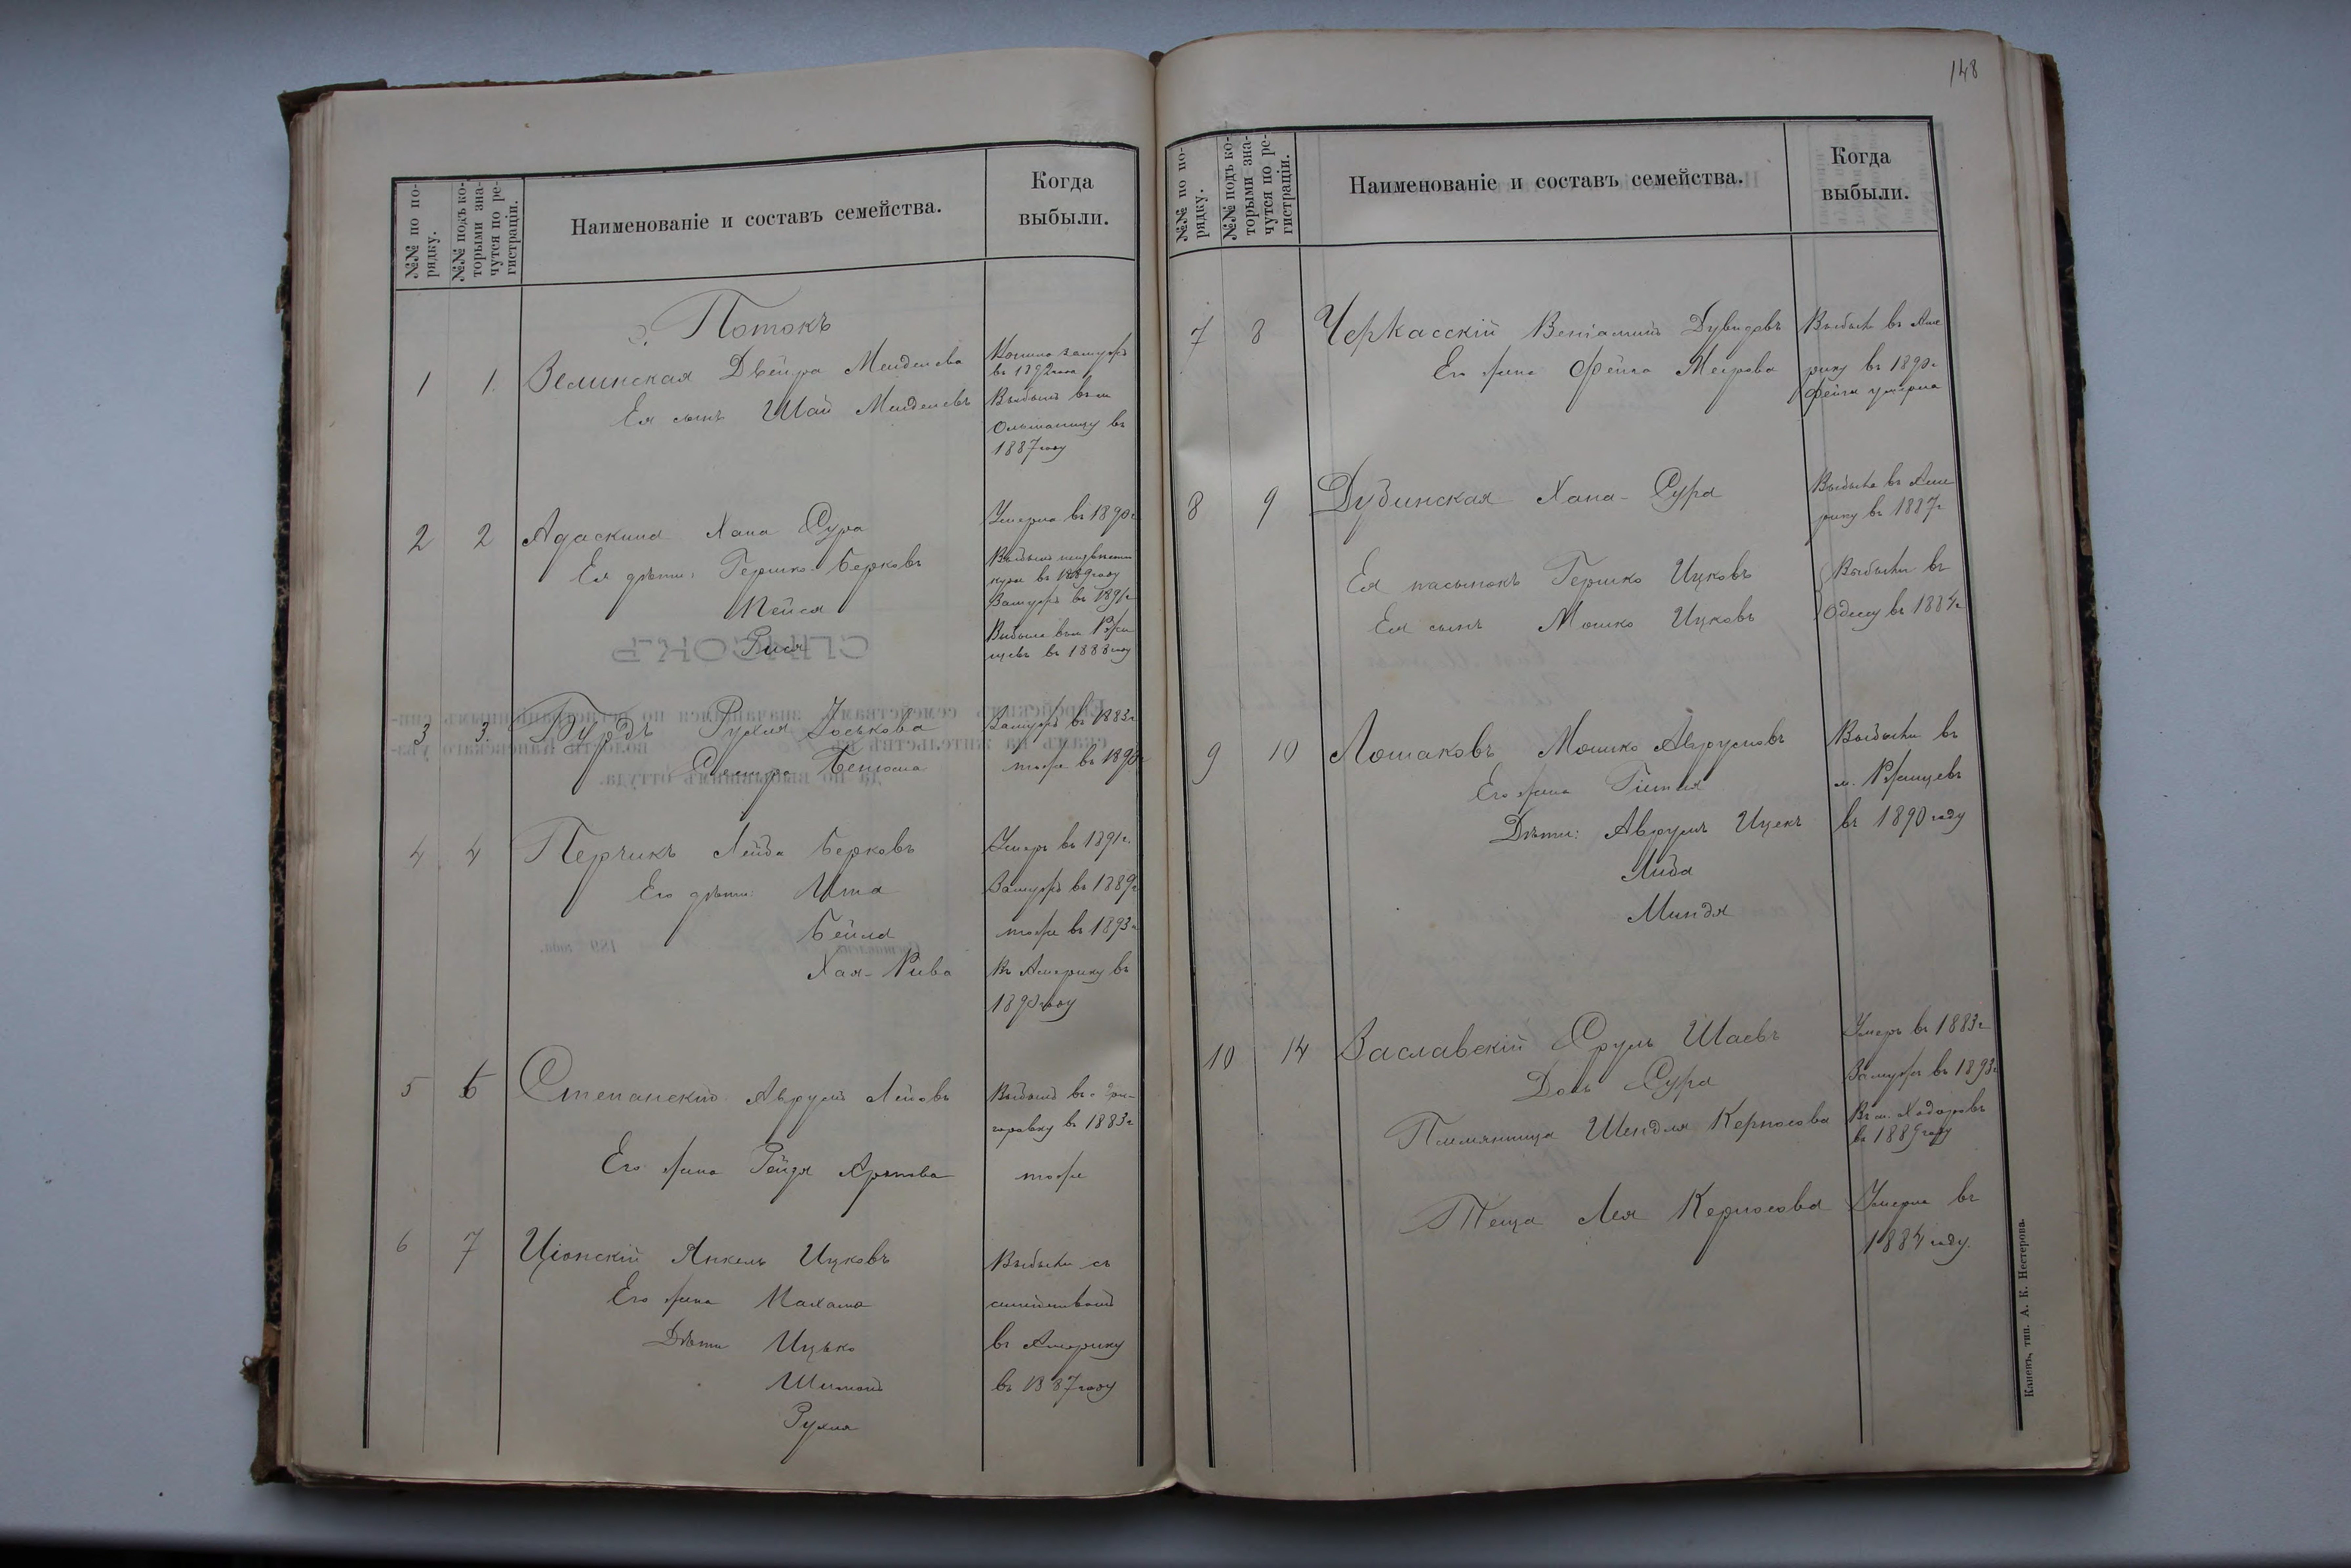 148
№№ по по-
рядку.
№№ подъ ко-
торыми зна-
чутся по ре-
гистраціи.
Наименованіе и составъ семейства.
Когда
выбыли.
с. Потокъ
1 1. Зелинская Двейра Менделева
вышла замужъ
въ 1892 года
Ея сынъ Шай Менделевъ
Выбылъ въ м
Ольшаницу въ
1887 году
2 2 Адаскина Хана Сура
Умерла въ 1890 г
Ея дѣти: Гершко Берковъ
Выбылъ неизвѣстно
куда въ 1889 году
Пейся
Замужъ въ 1891 г
Рися
Выбыла въ м Ржи
щевъ въ 1888 году
3 3. Бурдъ Рухля Іоськова
Замужъ въ 1883 г
Сестра Бенюма
тоже въ 1890 г
4 4 Перчикъ Лейба Берковъ
Умеръ въ 1891 г.
Его дѣти: Ита
Замужъ въ 1889 г
Бейла
тоже въ 1893 г
Хая-Рива
Въ Америку въ
1890 году
5 6 Степанскій Аврумъ Лейбовъ
Выбылъ въ
въ 1883 г
Его жена Рейзя
тоже
6 7 Ціонскій Янкель Ицковъ
Выбылъ съ
Его жена Малама
семействомъ
Дѣти Ицько
въ Америку
Шимонъ
въ 1887 году
Рухля
№№ по по-
рядку.
№№ подъ ко-
торыми зна-
чутся по ре-
гистраціи.
Наименованіе и составъ семейства.
Когда
выбыли.
7 8 Черкасскій Веніаминъ Дувидовъ
Выбылъ въ Аме
Его жена Фейга Меерова
рику въ 1890 г
Фейга умерла
8 9 Дубинская Хана-Сура
Выбыла въ Аме
рику въ 1887 г
Ея пасынокъ Гершко Ицковъ
Выбыли въ
Ея сынъ Мошко Ицковъ
Одессу въ 1884 г
9 10 Лошаковъ Мошко Аврумовъ
Выбыли въ
Его жена Гитля
м. Ржищевъ
Дѣти: Аврумъ Ицекъ
въ 1890 году
Либа
Миндя
10 14 Заславскій Сруль Шаевъ
Умеръ въ 1883 г
Дочь Сура
Замужъ въ 1893 г
Племянница Шендля Керносова
Въ м. Ходоровъ
въ 1889 году
Теща Лея Керносова
Умерла въ
1884 году.
Каневъ, тип. А. К. Нестерова.